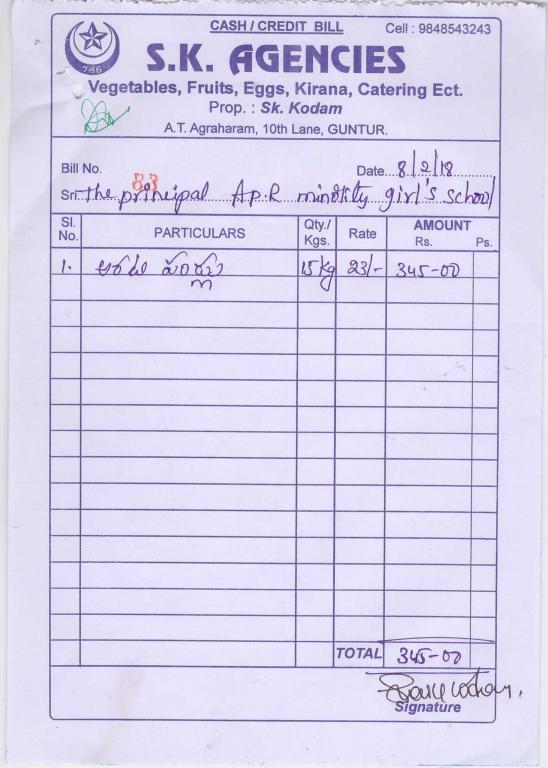 CASH / CREDIT BILL
Cell : 9848543243
786
S.K. AGENCIES
Vegetables, Fruits, Eggs, Kirana, Catering Ect.
Prop. : Sk. Kodam
A.T. Agraharam, 10th Lane, GUNTUR.
Bill No. 83
Date 8/2/18
Sri. The principal A.P.R minority girl's school
Sl. No. PARTICULARS Qty./ Kgs. Rate AMOUNT Rs. Ps.
1. అరటి పండ్లు 15 kg 23/- 345-00
TOTAL 345-00
Signature